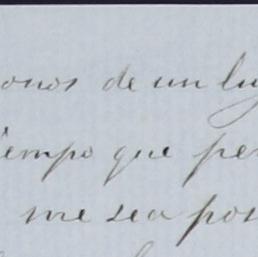 onos de un lu
iempo que per
me sea pos